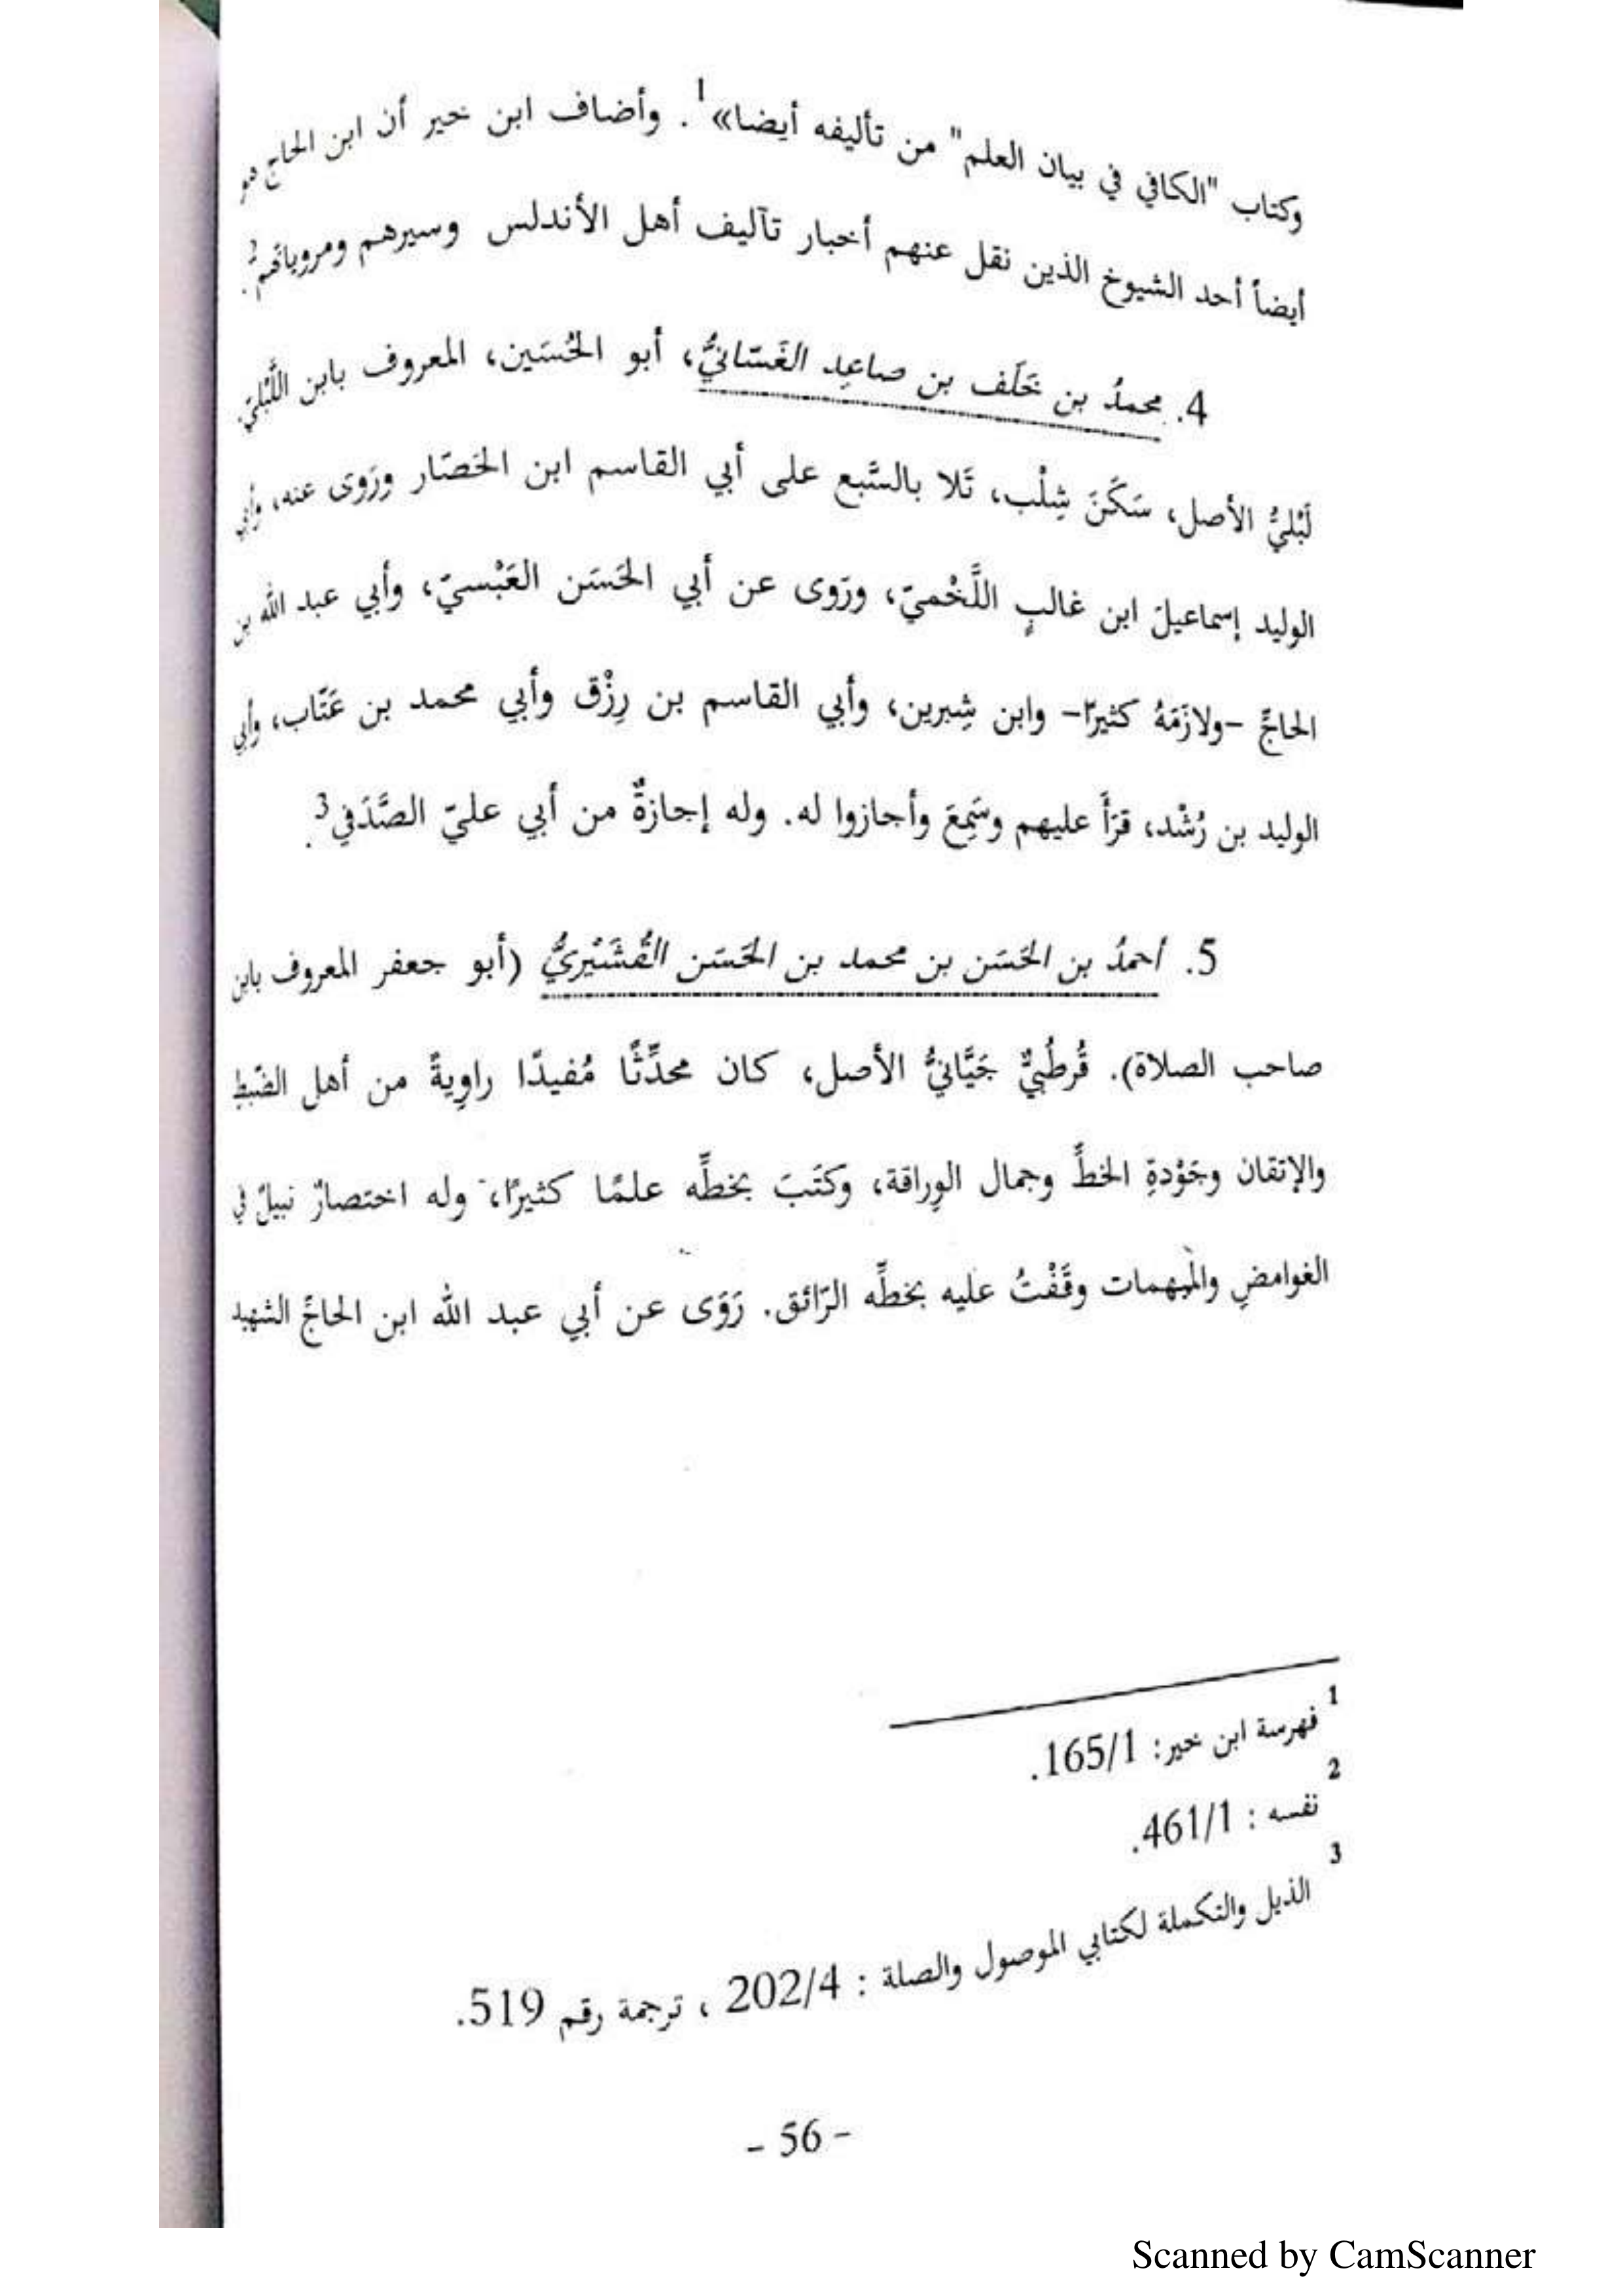 وكتاب "الكافي في بيان العلم" من تأليفه أيضا»1. وأضاف ابن خير أن ابن الحاج هو
أيضاً أحد الشيوخ الذين نقل عنهم أخبار تآليف أهل الأندلس وسيرهم ومروياتهم2.
4. محمدُ بن خَلَف بن صاعِد الغَسّانيُّ، أبو الحُسَين، المعروف بابن اللَّبْليّ.
لَبْليُّ الأصل، سَكَنَ شِلْب، تَلا بالسَّبع على أبي القاسم ابن الحَصّار ورَوى عنه، وأبي
الوليد إسماعيلَ ابن غالبٍ اللَّخْميّ، ورَوى عن أبي الحَسَن العَبْسيّ، وأبي عبد الله بن
الحاجِّ -ولازَمَهُ كثيرًا- وابن شِبرين، وأبي القاسم بن رِزْق وأبي محمد بن عَتّاب، وأبي
الوليد بن رُشْد، قرَأَ عليهم وسَمِعَ وأجازوا له. وله إجازةٌ من أبي عليّ الصَّدَفي3.
5. أحمدُ بن الحَسَن بن محمد بن الحَسَن القُشَيْرِيُّ (أبو جعفر المعروف بابن
صاحب الصلاة). قُرطُبيٌّ جَيَّانيُّ الأصل، كان محدِّثًا مُفيدًا راوِيةً من أهل الضّبطِ
والإتقان وجَوْدةِ الخطِّ وجمال الوِراقة، وكتَبَ بخطِّه علمًا كثيرًا، وله اختصارٌ نبيلٌ في
الغوامضِ والمُبهمات وقَفْتُ عليه بخطِّه الرّائق. رَوَى عن أبي عبد الله ابن الحاجِّ الشهيد
1 فهرسة ابن خير: 165/1.
2 نفسه : 461/1.
3 الذيل والتكملة لكتابي الموصول والصلة : 202/4 ، ترجمة رقم 519.
- 56 -
Scanned by CamScanner